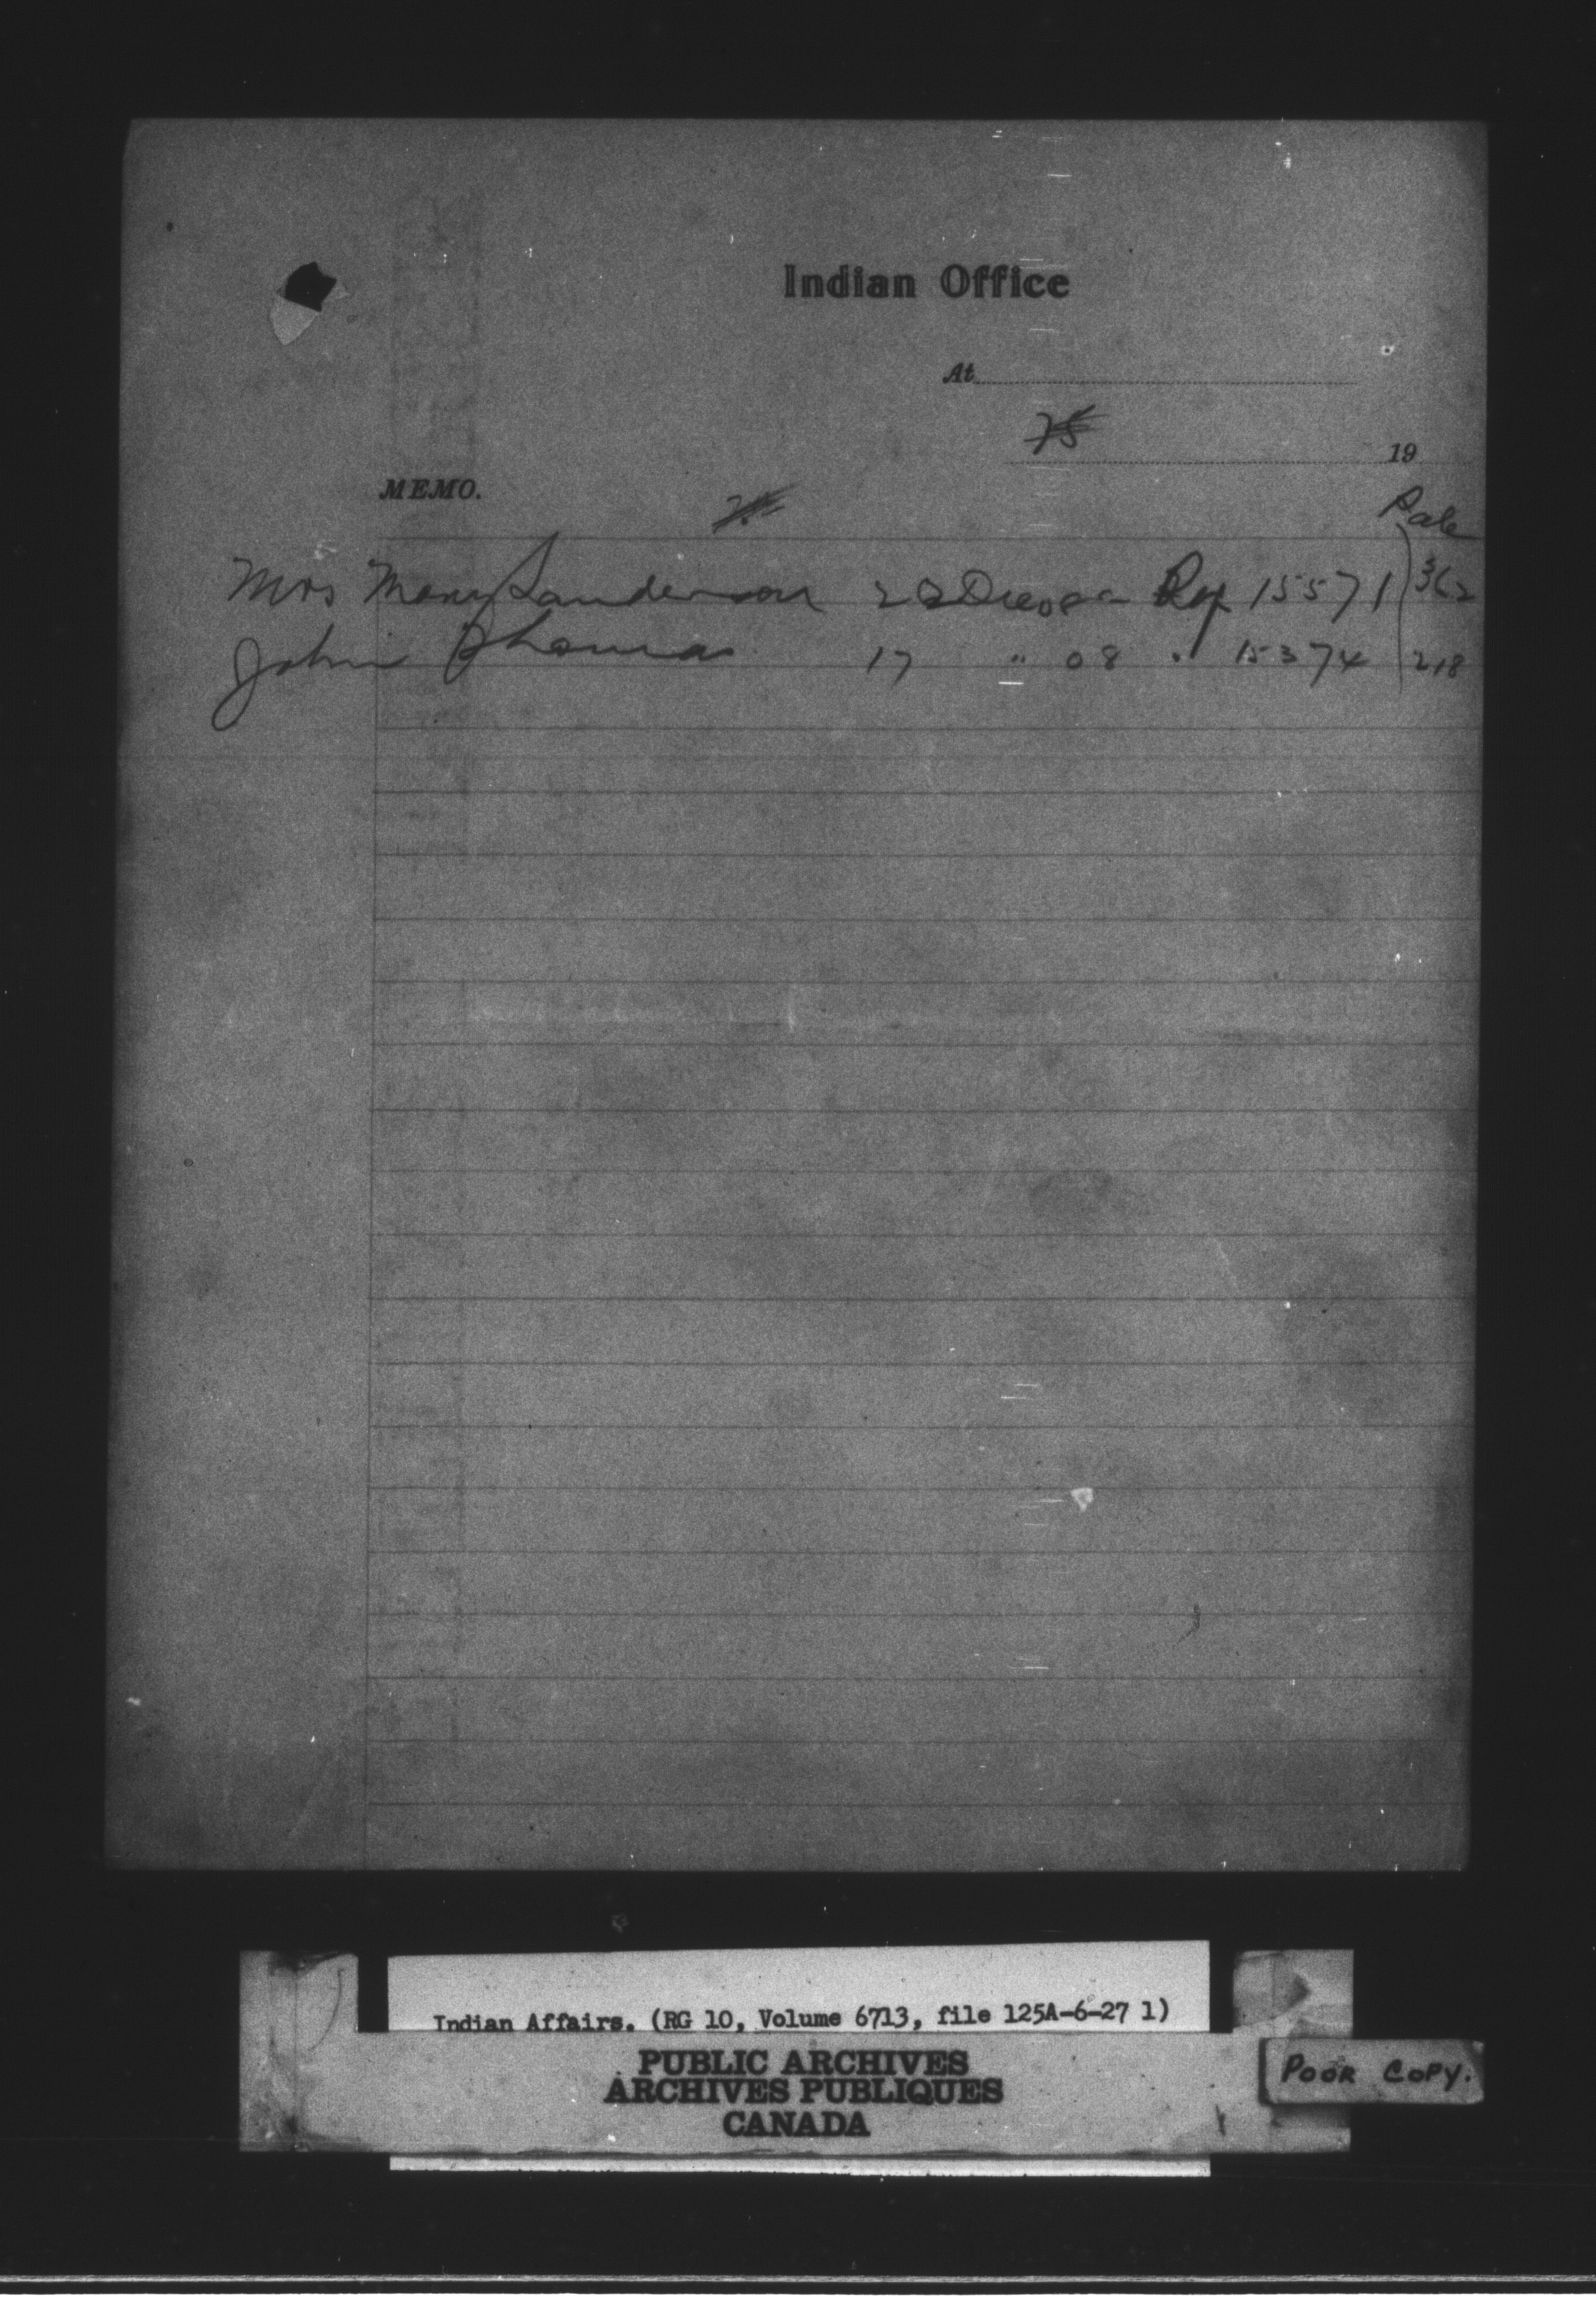 Indian Office
At
75
19
MEMO.
Sale
Mrs Mary Sanderson 22 Dec 08 Rg 15571 362
John Thomas 17 " 08 " 15374 218
Indian Affairs. (RG 10, Volume 6713, file 125A-6-27 1)
PUBLIC ARCHIVES
ARCHIVES PUBLIQUES
CANADA
POOR COPY.